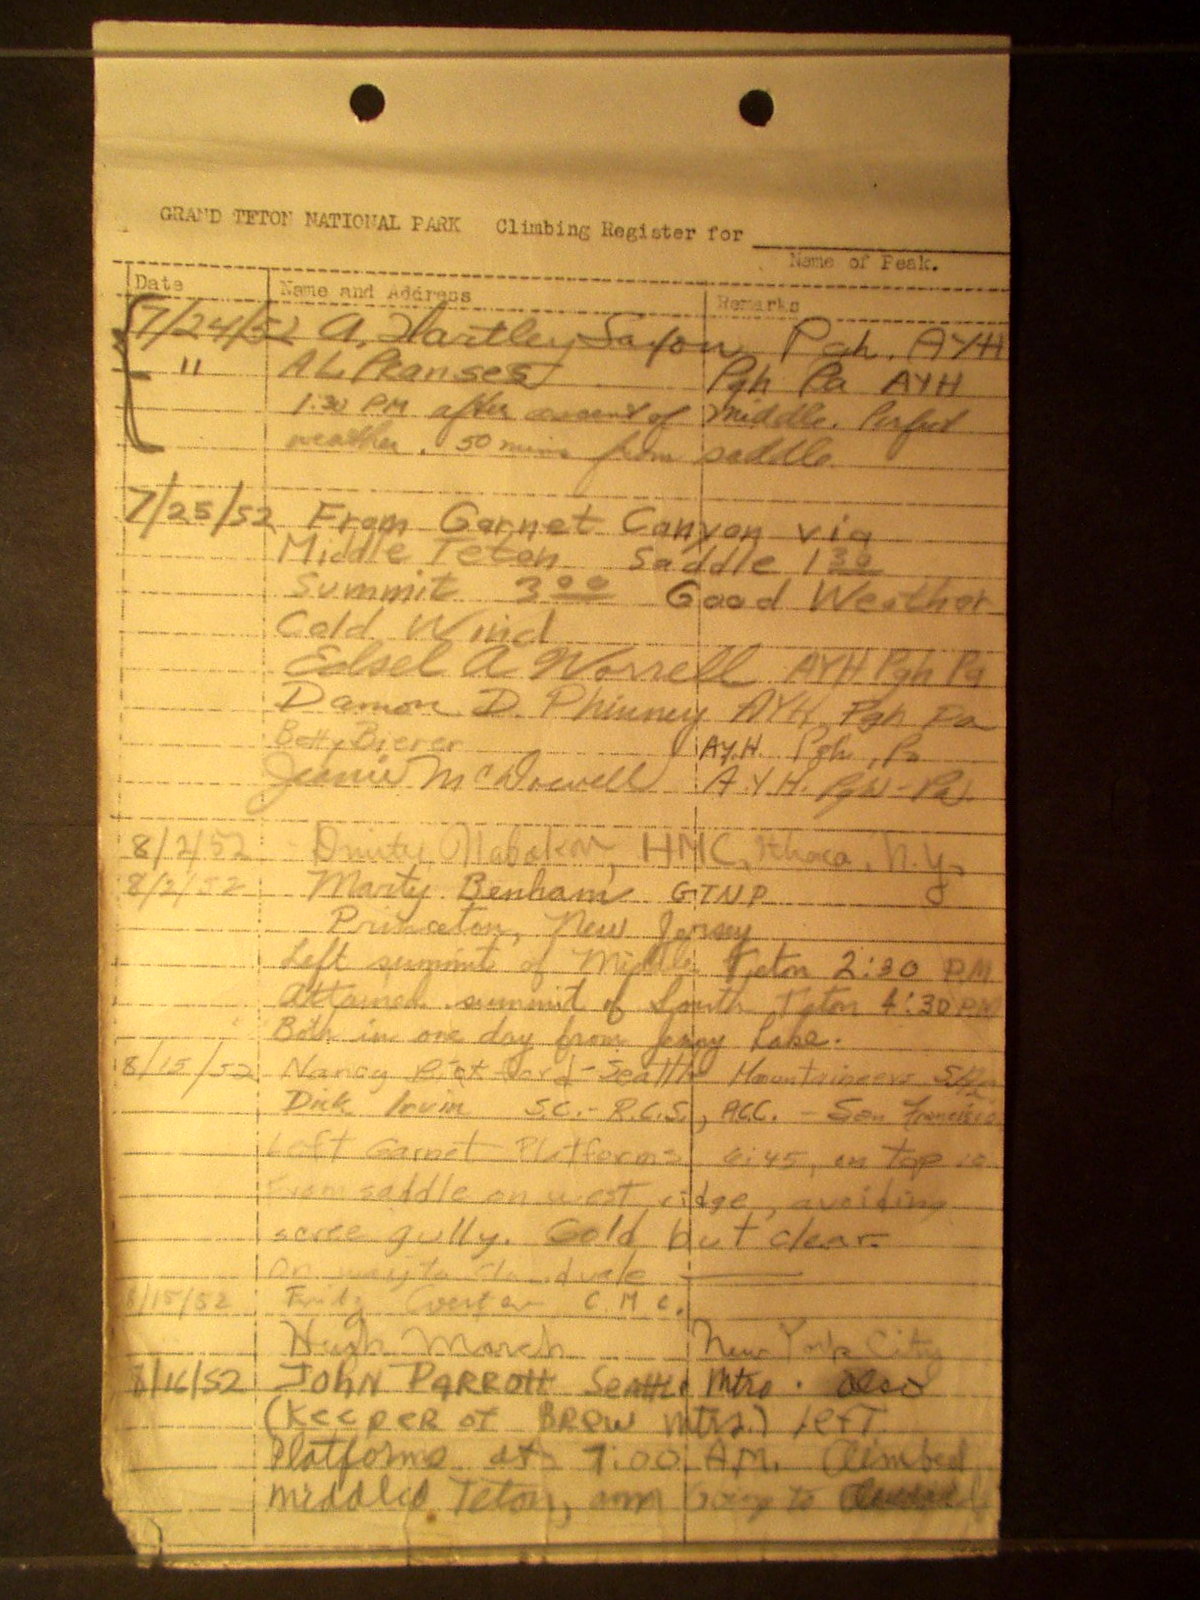 GRAND TETON NATIONAL PARK Climbing Register for
Name of Peak.
Date Name and Address Remarks
7/24/52 A. Hartley Saxon Pgh. AYH
" Pgh Pa AYH
1:30 PM after ascent of Middle. Perfect
weather. 50 mins from saddle.
7/25/52 From Garnet Canyon via
Middle Teton saddle 1 30
Summit 3 00 Good Weather
Cold Wind
Edsel A Worrell AYH Pgh Pa
Damon D. Phinney AYH Pgh Pa
Betty Bierer A.Y.H. Pgh, Pa
Jeanie McDowell A.Y.H. Pgh-Pa.
8/2/52 Dmitri Nabokov, HMC, Ithaca, N.Y.
8/2/52 Marty Benham GTNP
Princeton, New Jersey
Left summit of Middle Teton 2:30 PM
Attained summit of South Teton 4:30 PM
Both in one day from Jenny Lake.
8/15/52 Nancy Bickford - Seattle Mountaineers
Dick Irvin S.C.-R.C.S., ACC. - San Francisco
Left Garnet Platforms 6:45, on top 10
From saddle on west ridge, avoiding
scree gully. Cold but clear.
On way to
8/15/52 C.M.C.
Hugh March New York City
8/16/52 JOHN PARROTT Seattle Mtrs. Also
(Keeper of BREW Mtrs.) Left
Platforms at 7:00 A.M. Climbed
middle Teton, am Going to